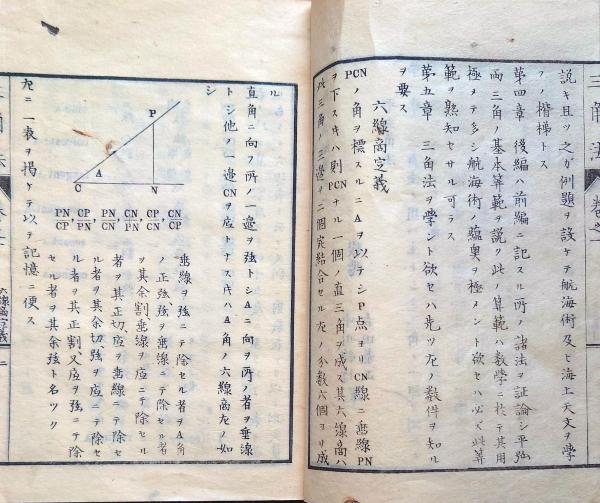 三角法 卷之一
説キ且ツ之カ例題ヲ設ケテ航海術及ヒ海上天文ヲ學
フノ楷梯トス
第四章 後編ハ前編ニ記スル所ノ諸法ヲ証論シ平弧
両三角ノ基本算範ヲ説ク此ノ算範ハ数學ニ於テ其用
極メテ多シ航海術ノ蘊奥ヲ極メント欲セハ必ス此算
範ヲ熟知セサル可ラス
第五章 三角法ヲ學ント欲セハ先ツ左ノ数件ヲ知ル
ヲ要ス
六線啇定義
PCNノ角ヲ標スルニAヲ以テシP点ヨリCN線ニ垂線PN
ヲ下スキハ則PCNナル一個ノ直三角ヲ成ス其六線啇ハ
此三角ノ三邊ヲ二個宛結合セル左ノ分数六個ヨリ成
ル
直角ニ向フ所ノ一邊ヲ弦トシAニ向ヲ所ノ者ヲ垂線
トシ他ノ一邊CNヲ底トナスキハA角ノ六線啇左ノ如
シ
P
A
C N
PN/CP, CP/PN, PN/CN, CN/PN, CP/CN, CN/CP
垂線ヲ弦ニテ除セル者ヲA角
ノ正弦弦ヲ垂線ニテ除セル者
ヲ其余割垂線ヲ底ニテ除セル
者ヲ其正切底ヲ垂線ニテ除セ
ル者ヲ其余切弦ヲ底ニテ除セ
ル者ヲ其正割又底ヲ弦ニテ除
セル者ヲ其余弦ト名ツク
左ニ一表ヲ掲ケテ以テ記憶ニ便ス
六線啇定義 二